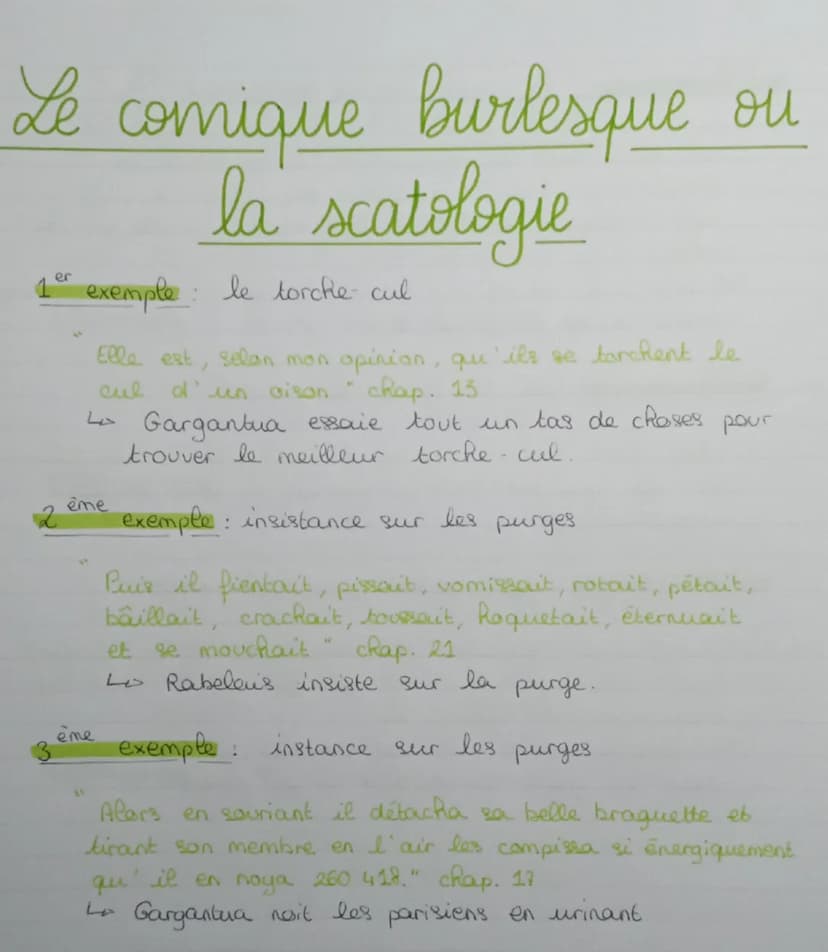 Le comique burlesque ou
la scatologie
1er exemple : le torche-cul
"Elle est, selon mon opinion, qu'ils se torchent le
cul d'un oison" chap. 13
↳ Gargantua essaie tout un tas de choses pour
trouver le meilleur torche-cul.
2ème exemple : insistance sur les purges
"Puis il fientait, pissait, vomissait, rotait, pétait,
bâillait, crachait, toussait, hoquetait, éternuait
et se mouchait" chap. 21
↳ Rabelais insiste sur la purge.
3ème exemple : instance sur les purges
"Alors en souriant il détacha sa belle braguette et
tirant son membre en l'air les compissa si énergiquement
qu'il en noya 260 418." chap. 17
↳ Gargantua noit les parisiens en urinant